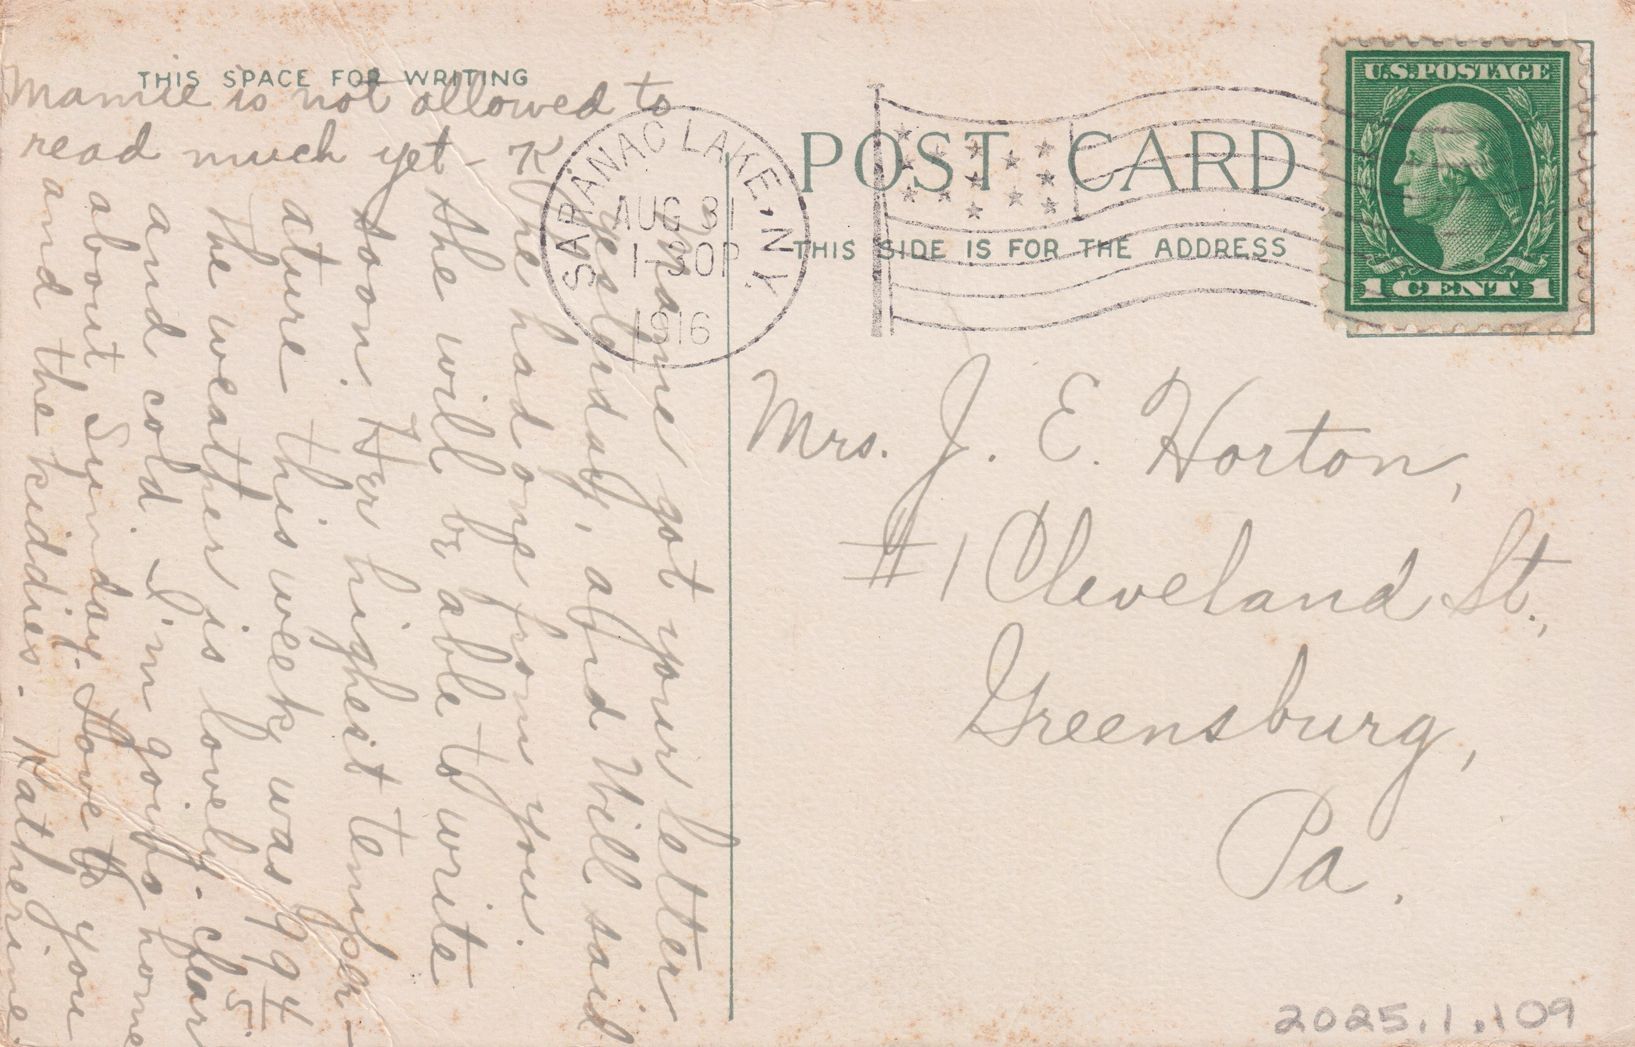 THIS SPACE FOR WRITING
Mamie is not allowed to
read much yet - K
Mamie got your letter
yesterday, and Will said
he had one from you.
She will be able to write
soon. Her highest temper-
ature this week was 99 4/5
The weather is lovely - clear
and cold. I'm going home
about Sunday. Love to you
and the kiddies. - Katherine.
SARANAC LAKE, N.Y.
AUG 31
1-30P
1916
POST CARD
THIS SIDE IS FOR THE ADDRESS
U.S. POSTAGE
1 CENT 1
Mrs. J. E. Horton,
#1 Cleveland St.,
Greensburg,
Pa.
2025.1.109